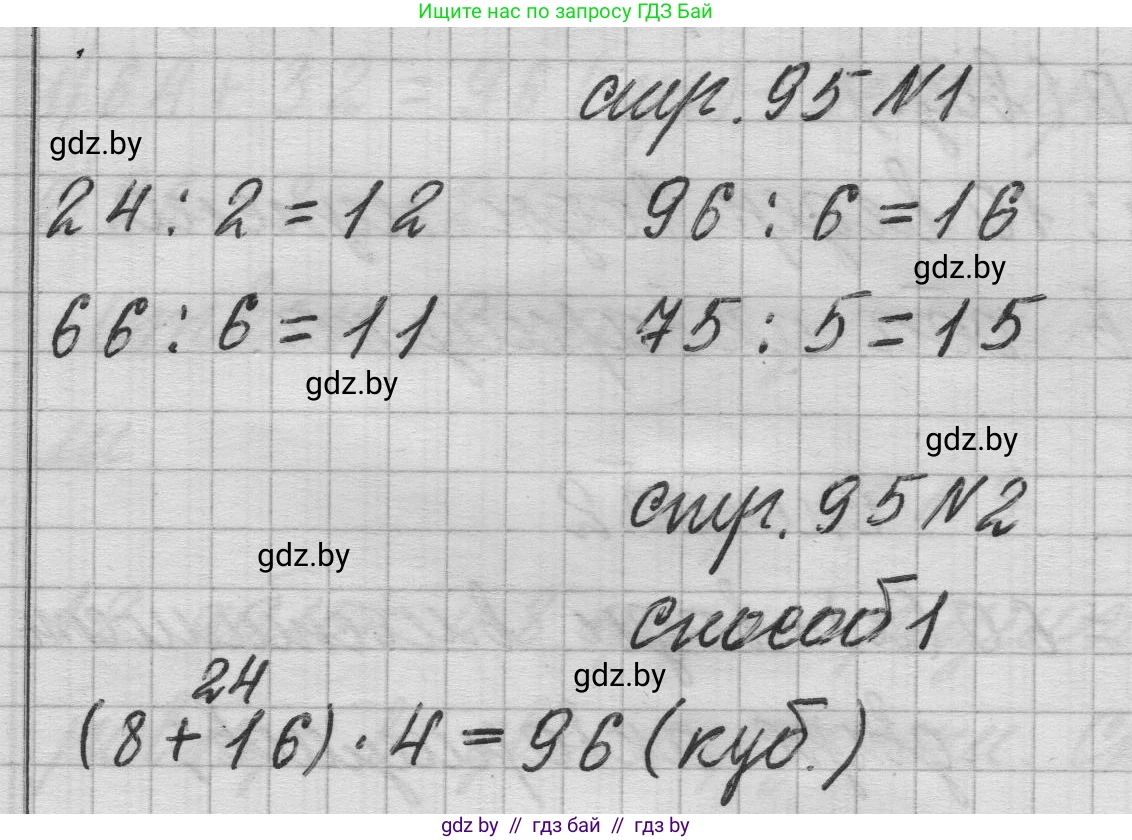 Ищите нас по запросу ГДЗ Бай
стр. 95 N1
gdz.by
24 : 2 = 12 96 : 6 = 16
gdz.by
66 : 6 = 11 75 : 5 = 15
gdz.by
gdz.by
стр. 95 N2
gdz.by
способ 1
gdz.by
24
(8 + 16) · 4 = 96 (куб.)
gdz.by // гдз бай // gdz.by